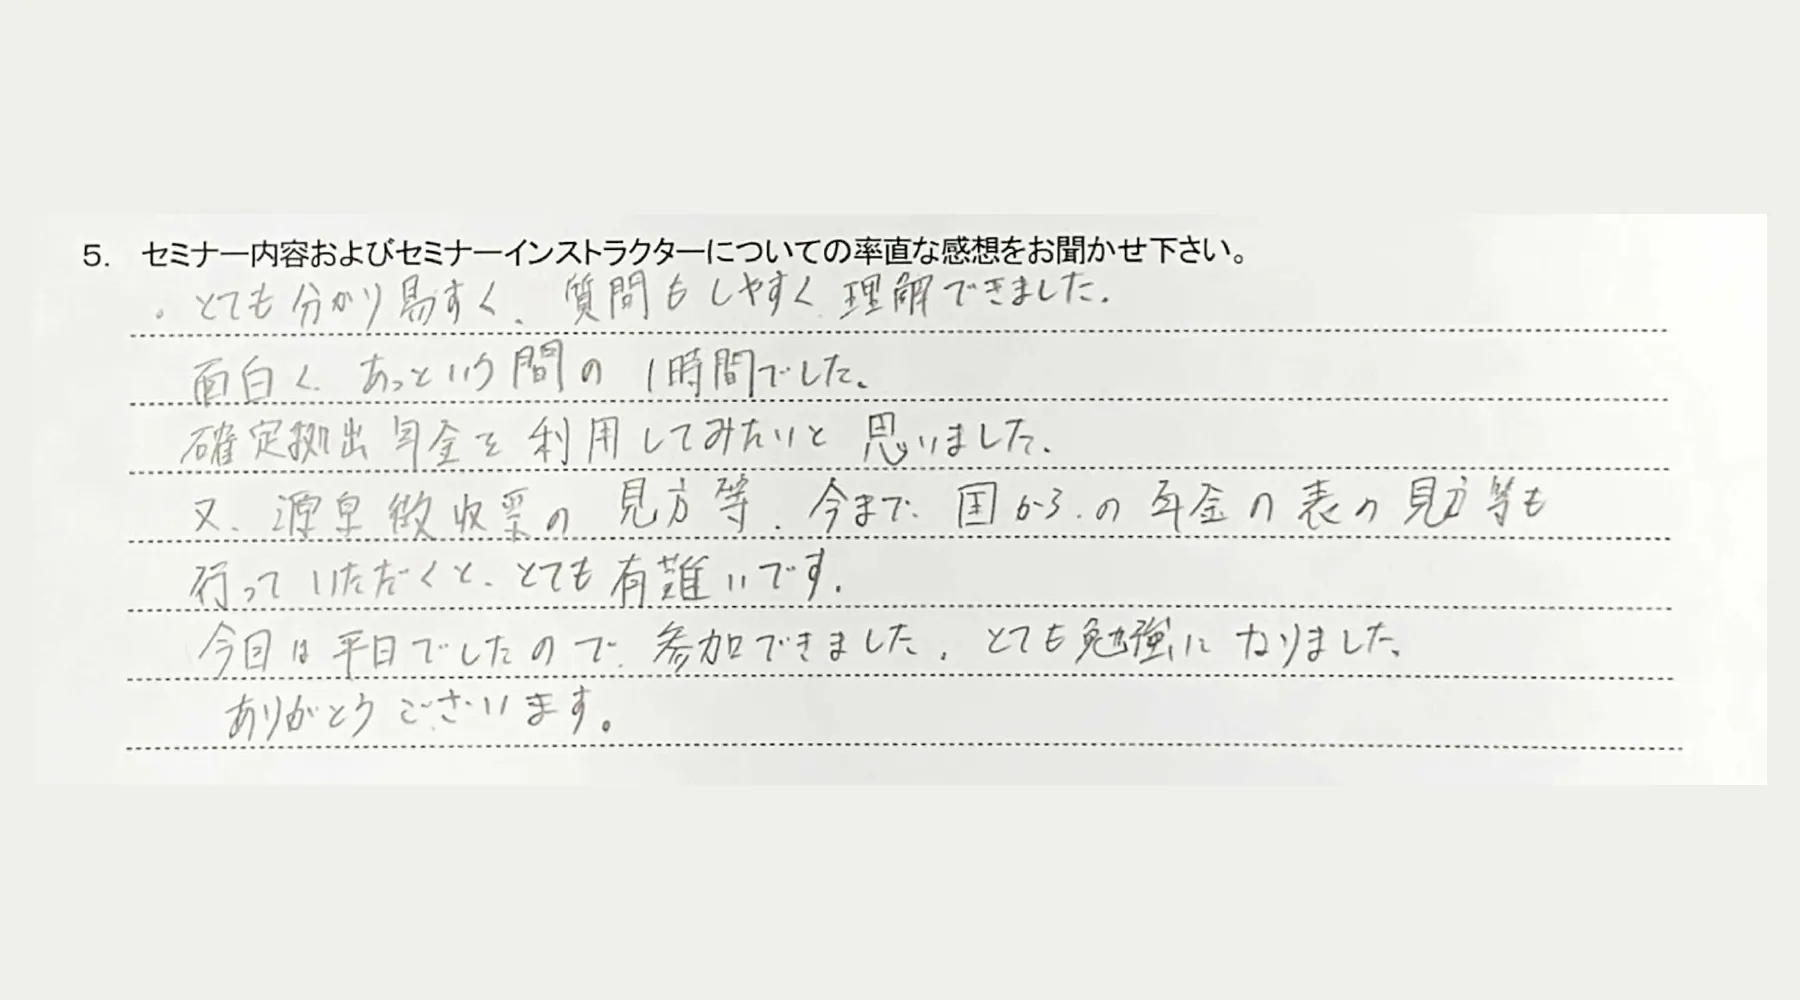 5. セミナー内容およびセミナーインストラクターについての率直な感想をお聞かせ下さい。
・とても分かり易すく、質問もしやすく理解できました。
面白く、あっという間の1時間でした。
確定拠出年金を利用してみたいと思いました。
又、源泉徴収票の見方等、今まで、国からの年金の表の見方等も
行っていただくと、とても有難いです。
今日は平日でしたので、参加できました。とても勉強になりました。
ありがとうございます。